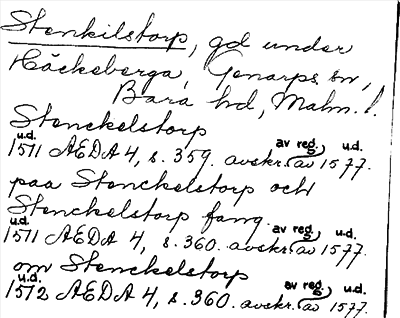 Stenkilstorp, gd under
Häckeberga, Genarps sn,
Bara hd, Malm. l.
Stenckelstorp
u.d. av reg. u.d.
1511 AEDA 4, s. 359. avskr. av 1577.
paa Stenckelstorp och
Stenckelstorp fang.
u.d. av reg. u.d.
1511 AEDA 4, s. 360. avskr. av 1577.
om Stenckelstorp
u.d. av reg. u.d.
1512 AEDA 4, s. 360. avskr. av 1577.